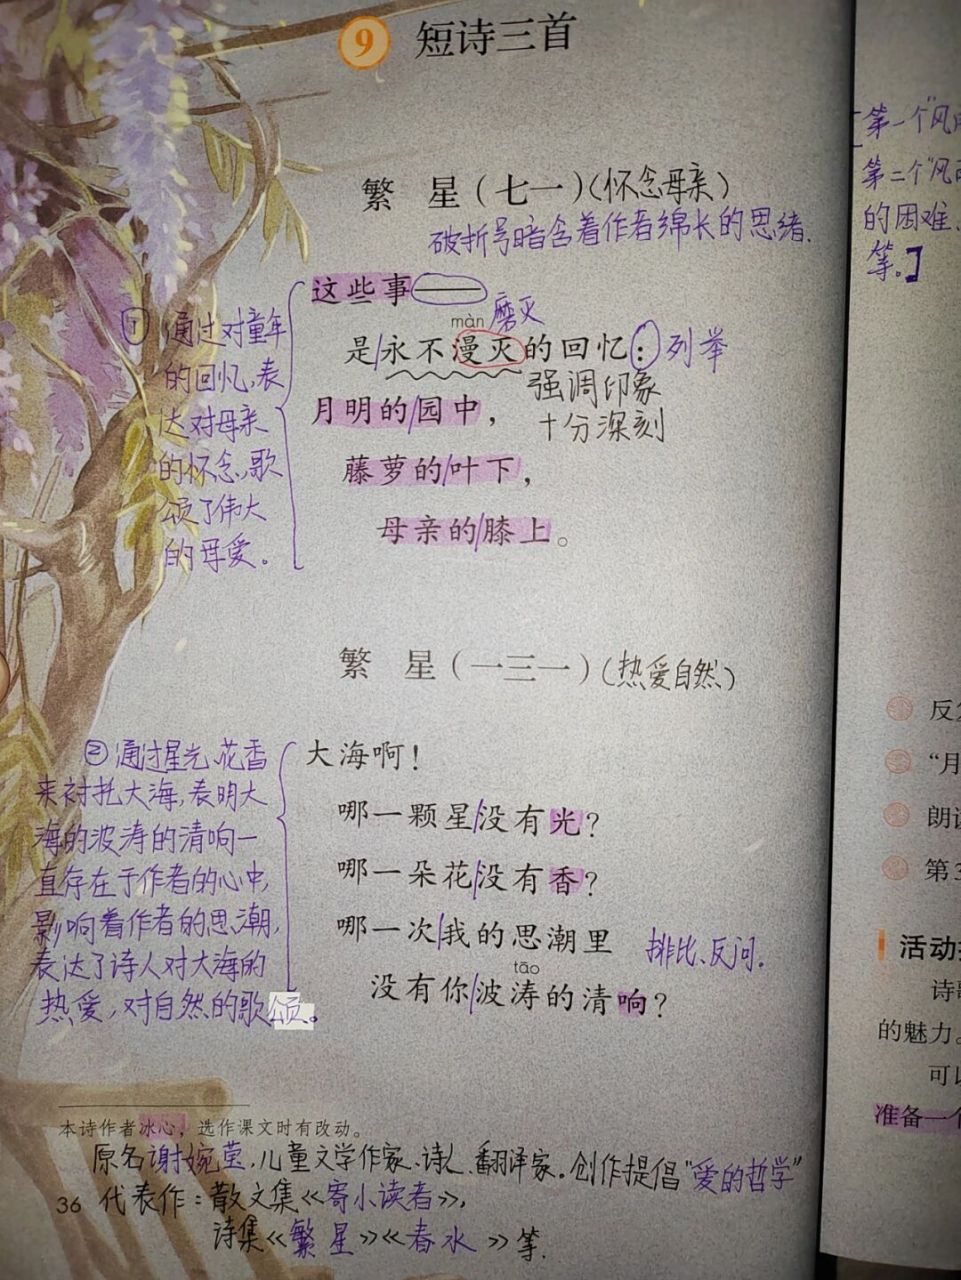 9 短诗三首
繁 星(七一)(怀念母亲)
破折号暗含着作者绵长的思绪.
这些事——
màn 磨灭
是/永不漫灭的回忆:列举
强调印象
十分深刻
月明的/园中,
藤萝的/叶下,
母亲的/膝上。
①通过对童年
的回忆,表
达对母亲
的怀念,歌
颂了伟大
的母爱。
繁 星(一三一)(热爱自然)
大海啊!
哪一颗星/没有光?
哪一朵花/没有香?
哪一次/我的思潮里
排比、反问.
tāo
没有你/波涛的清响?
②通过星光、花香
来衬托大海,表明大
海的波涛的清响一
直存在于作者的心中,
影响着作者的思潮,
表达了诗人对大海的
热爱,对自然的歌颂。
本诗作者冰心,选作课文时有改动。
原名谢婉莹,儿童文学作家、诗人、翻译家。创作提倡“爱的哲学”
36 代表作:散文集《寄小读者》,
诗集《繁星》《春水》等.
[第一个“风
第二个“风
的困难、
等。]
反
“月
朗
第3
活动
诗
的魅力。
可
准备一个